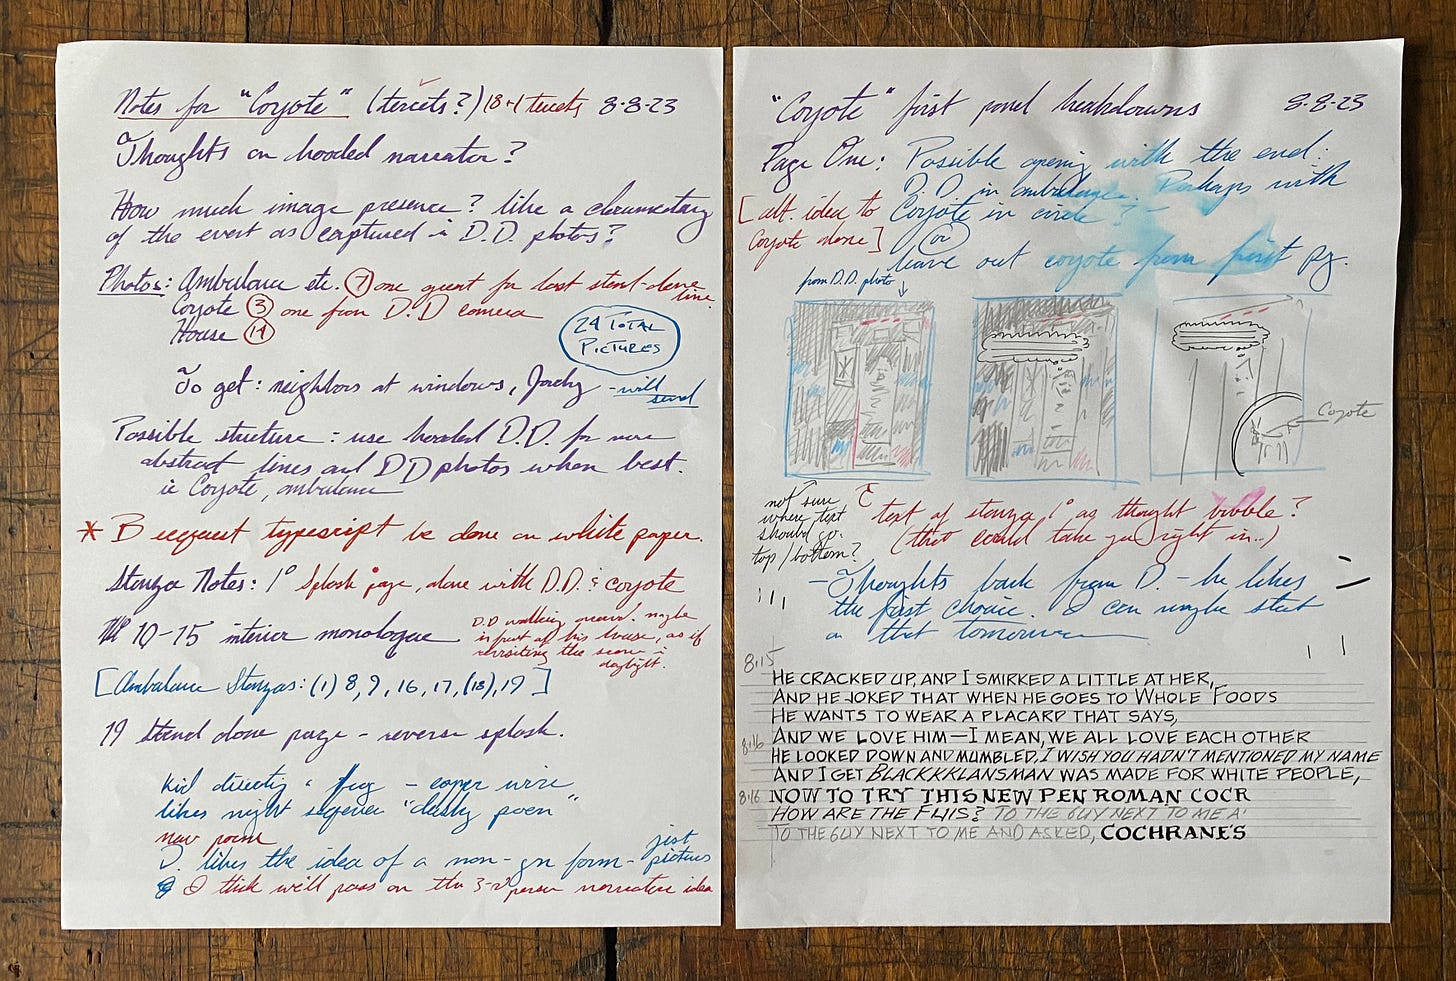 Notes for "Coyote" (tercets?) 18+1 tercets 8-8-23
Thoughts on hooded narrator?
How much image presence? like a documentary
of the event as captured in D.D. photos?
Photos: Ambulance etc. 7 one quent for last stand-alone line.
Coyote 3 one from D.D camera
House 14
24 TOTAL
PICTURES
To get: neighbors at windows, Jordy - will send
Possible structure: use hooded D.D. for more
abstract lines and DD photos when best.
ie Coyote, ambulance
* B request typescript be done on white paper.
Stanza Notes: 1° Splash page, done with D.D. & coyote
10-15 interior monologue
D.D walking around. maybe
in front of his house, as if
revisiting the scene in
daylight.
[Ambulance Stanzas: (1) 8, 9, 16, 17, (18), 19]
19 Stand alone page - reverse splash.
Kid directing
likes night sequence
new poem
D. likes the idea of a non-gn form - just pictures
I think we'll pass on the 3rd person narrative idea
"Coyote" first panel breakdowns 8-8-23
Page One: Possible opening with the end:
D.D. in ambulance. Perhaps with
[alt. idea to
Coyote alone]
Coyote in circle?
(or)
leave out coyote from first pg.
from D.D. photo
Coyote
not sure
where text
should go.
top/bottom?
text of stanza 1° as thought bubble?
(that could take you right in..)
- Thoughts back from D. - he likes
the first choice. I can maybe start
on that tomorrow
8:15
HE CRACKED UP, AND I SMIRKED A LITTLE AT HER,
AND HE JOKED THAT WHEN HE GOES TO WHOLE FOODS
HE WANTS TO WEAR A PLACARD THAT SAYS,
8:16
AND WE LOVE HIM—I MEAN, WE ALL LOVE EACH OTHER
HE LOOKED DOWN AND MUMBLED, I WISH YOU HADN'T MENTIONED MY NAME
AND I GET BLACKKKLANSMAN WAS MADE FOR WHITE PEOPLE,
8:16
NOW TO TRY THIS NEW PEN ROMAN COCR
HOW ARE THE FLIIS? TO THE GUY NEXT TO ME A
TO THE GUY NEXT TO ME AND ASKED, COCHRANE'S